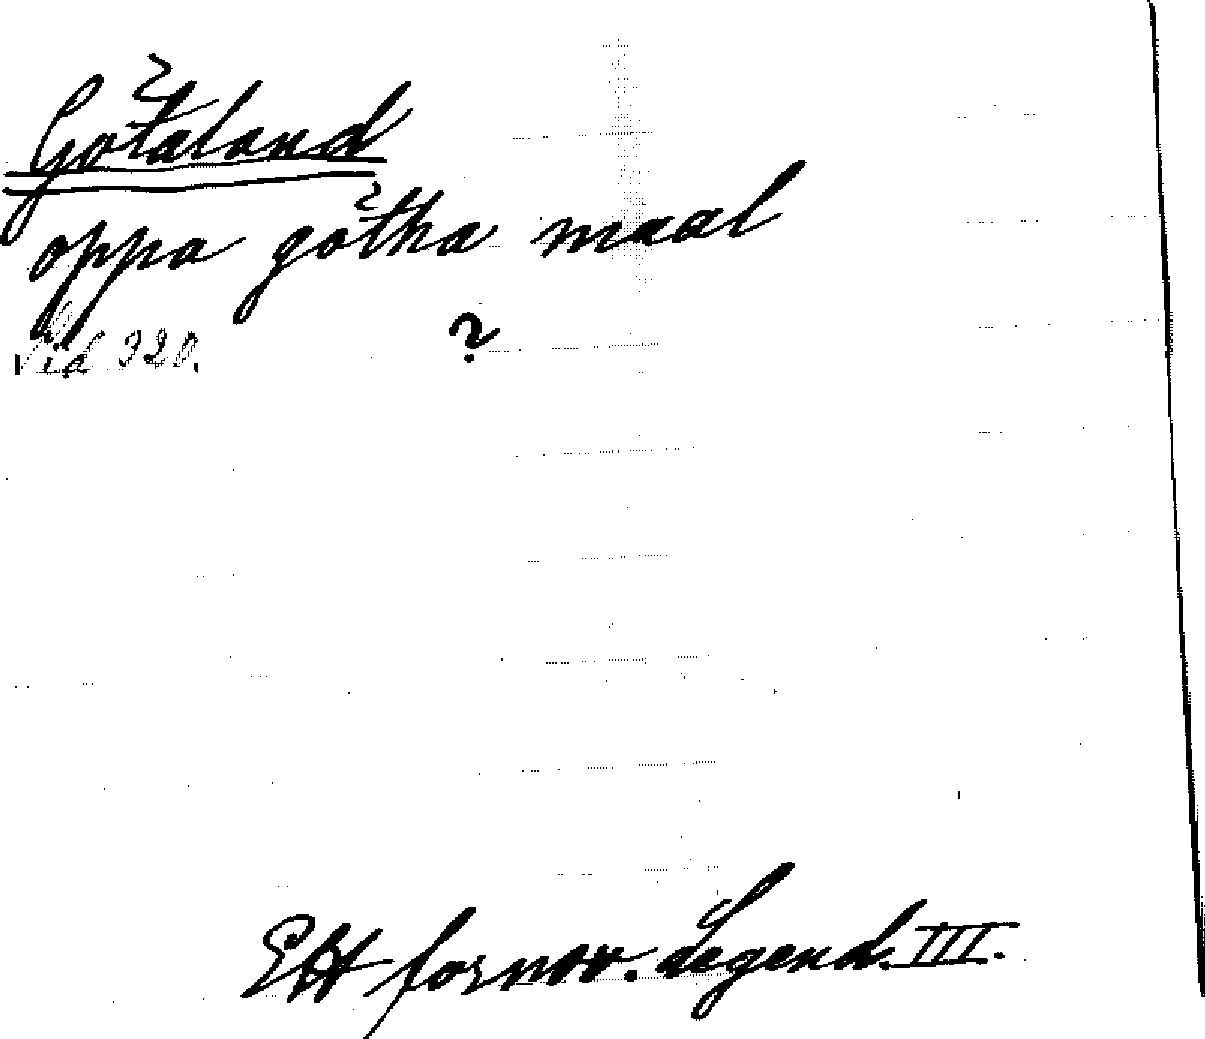 Götaland
oppa götha maal
?
Sid 320.
Ett fornsv. Legend. III.